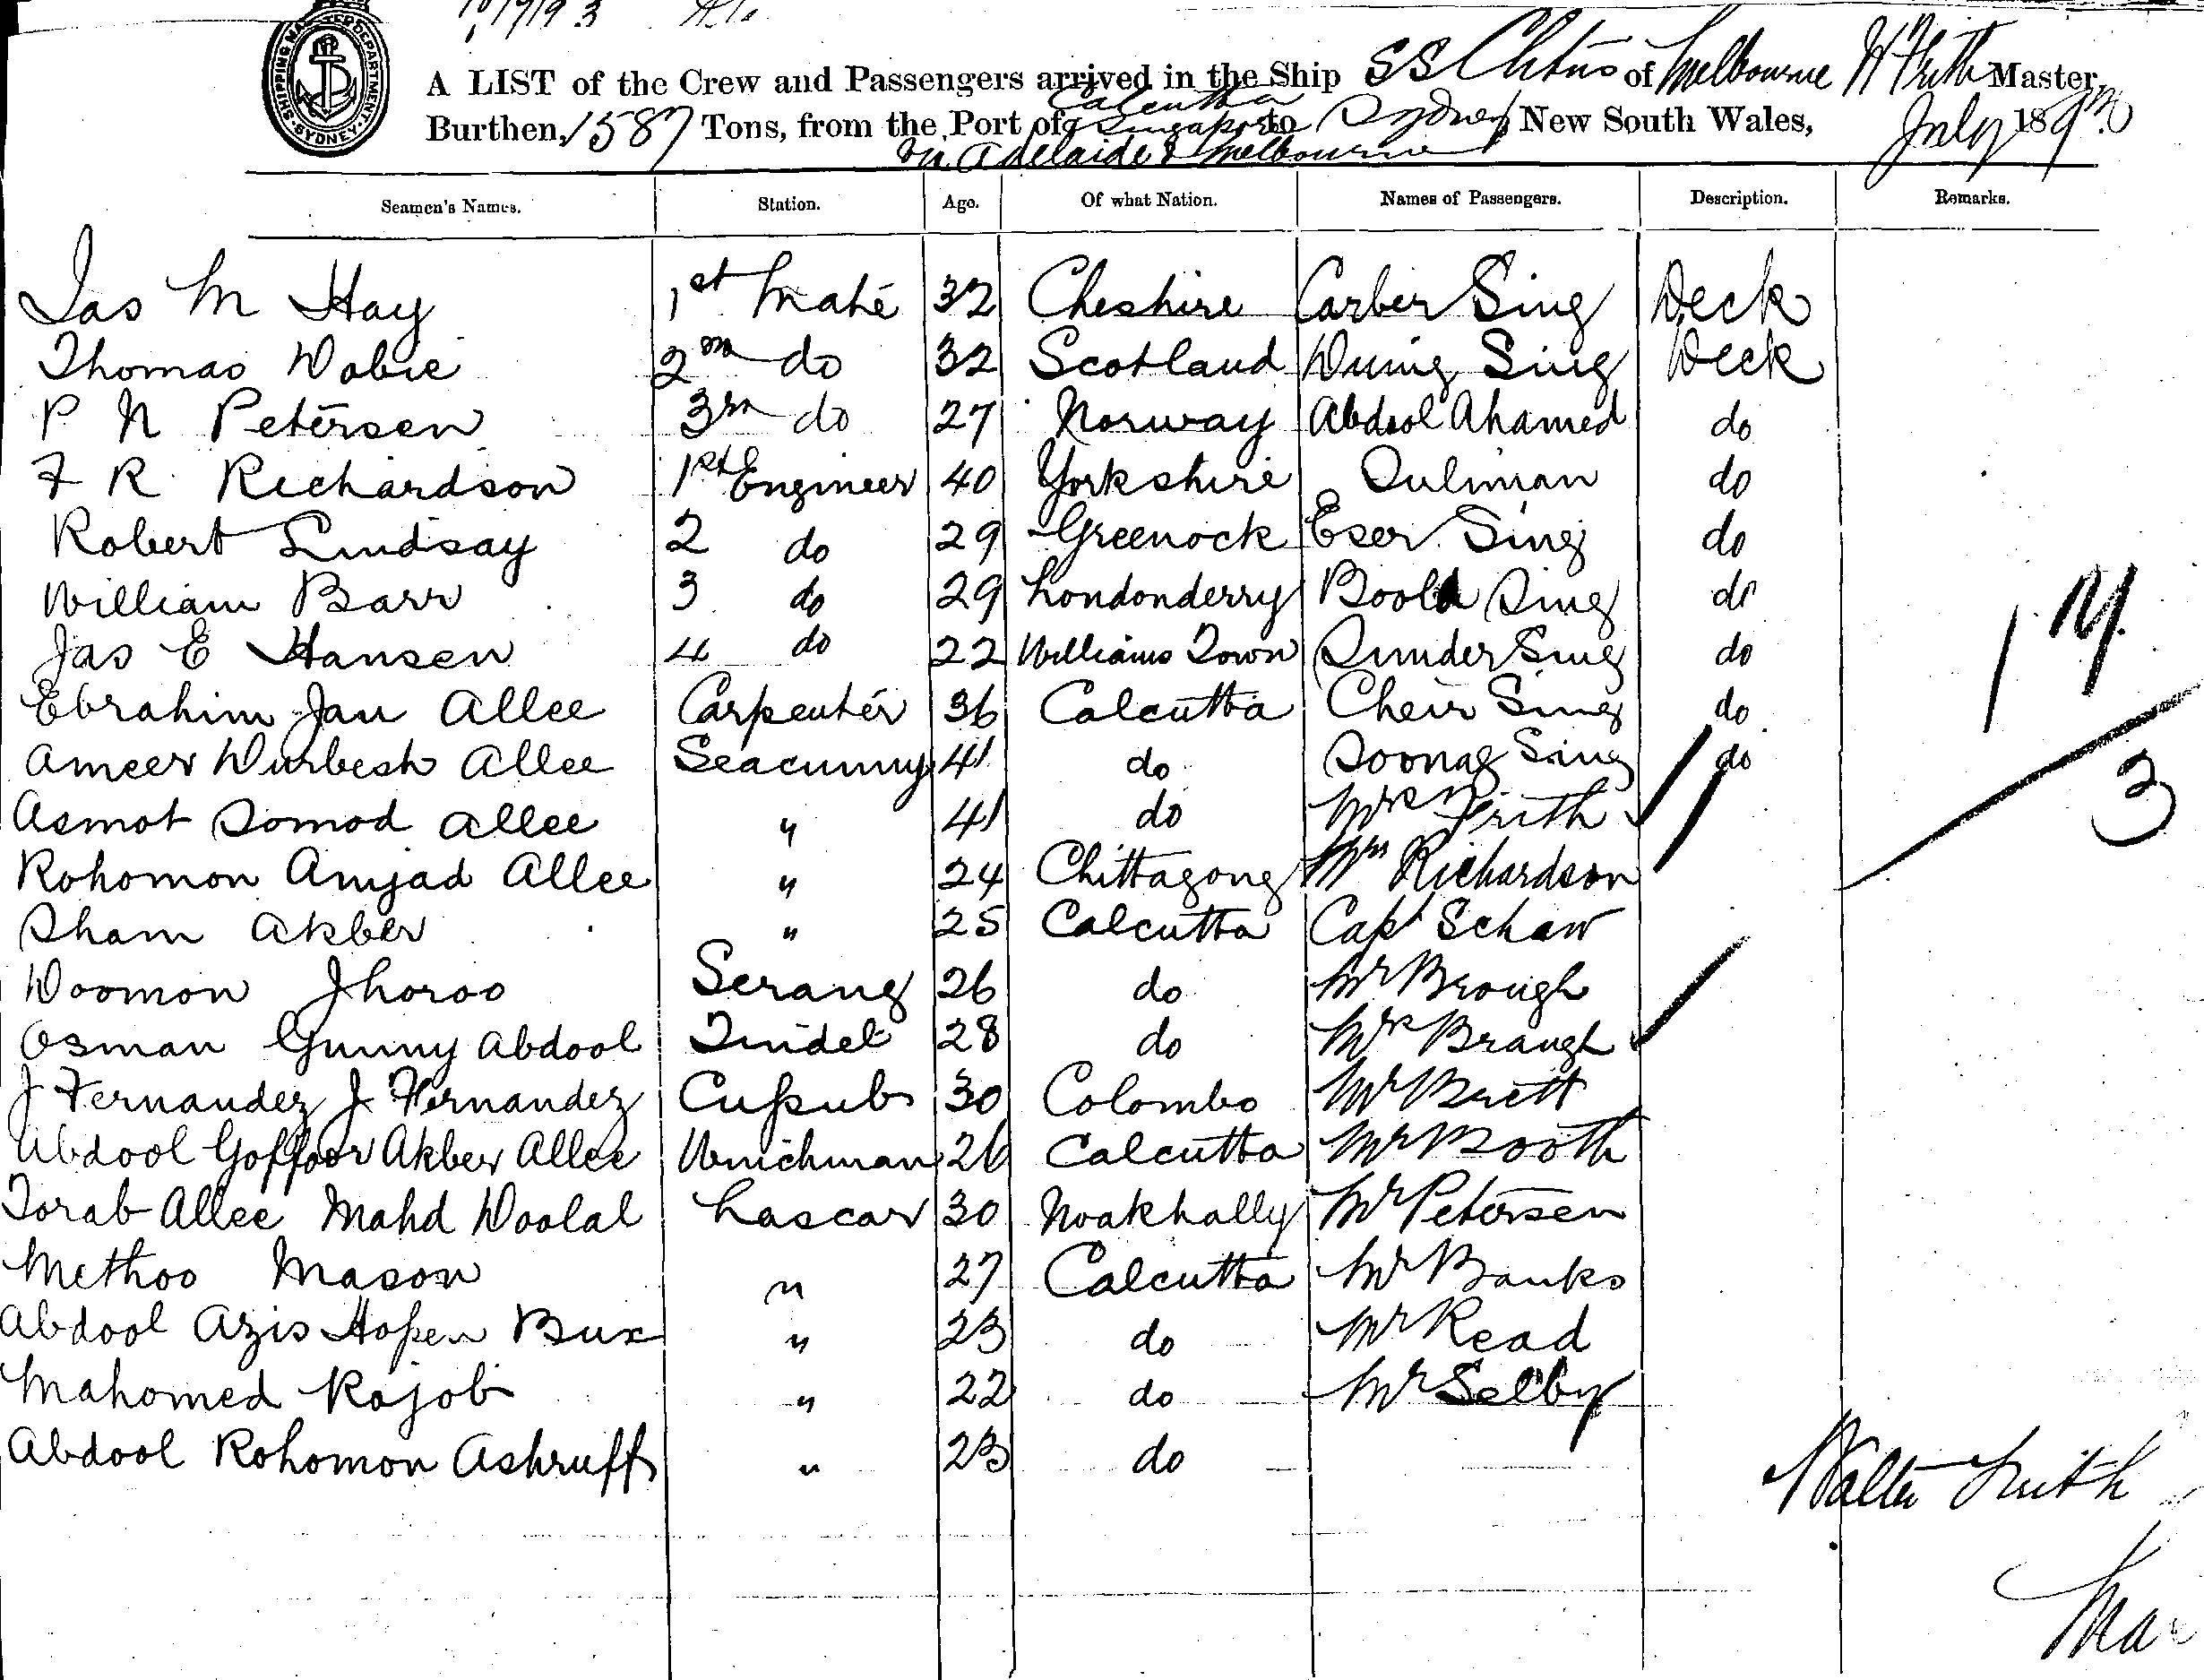 SHIPPING MASTER'S DEPARTMENT · SYDNEY ·
A LIST of the Crew and Passengers arrived in the Ship SS Clitus of Melbourne W Frith Master,
Calcutta
Burthen, 1587 Tons, from the Port of & Singapore to Sydney, New South Wales, July 189
via Adelaide & Melbourne
Seamen's Names. Station. Age. Of what Nation. Names of Passengers. Description. Remarks.
Jas M Hay 1st Mate 32 Cheshire Carber Sing Deck
Thomas Dobie 2nd do 32 Scotland Duing Sing Deck
P N Petersen 3rd do 27 Norway Abdool Ahamed do
F R Richardson 1st Engineer 40 Yorkshire Suliman do
Robert Lindsay 2 do 29 Greenock Eser Sing do
William Barr 3 do 29 Londonderry Boola Sing do
Jas E Hansen 4 do 22 Williams Town Sunder Sing do
Ebrahim Jan Allee Carpenter 36 Calcutta Cheir Sing do
Ameer Durbesh Allee Seacunny 41 do Soonag Sing do
Asmot Somod Allee " 41 do Mrs Frith
Rohomon Amjad Allee " 24 Chittagong Mrs Richardson
Sham Akber " 25 Calcutta Capt Schaw
Doomon Jhoroo Serang 26 do Mr Brough
Osman Gunny Abdool Tindel 28 do Mrs Brough
J Fernandez J Fernandez Cussub 30 Colombo Mr Brett
Abdool Goffoor Akber Allee Winchman 26 Calcutta Mr Booth
Torab Allee Mahd Doolal Lascar 30 Noakhally Mr Petersen
Methoo Mason " 27 Calcutta Mr Banks
Abdool Azis Hossen Bux " 23 do Mr Read
Mahomed Rojob " 22 do Mr Selby
Abdool Rohomon Ashruff " 23 do
Walter Frith